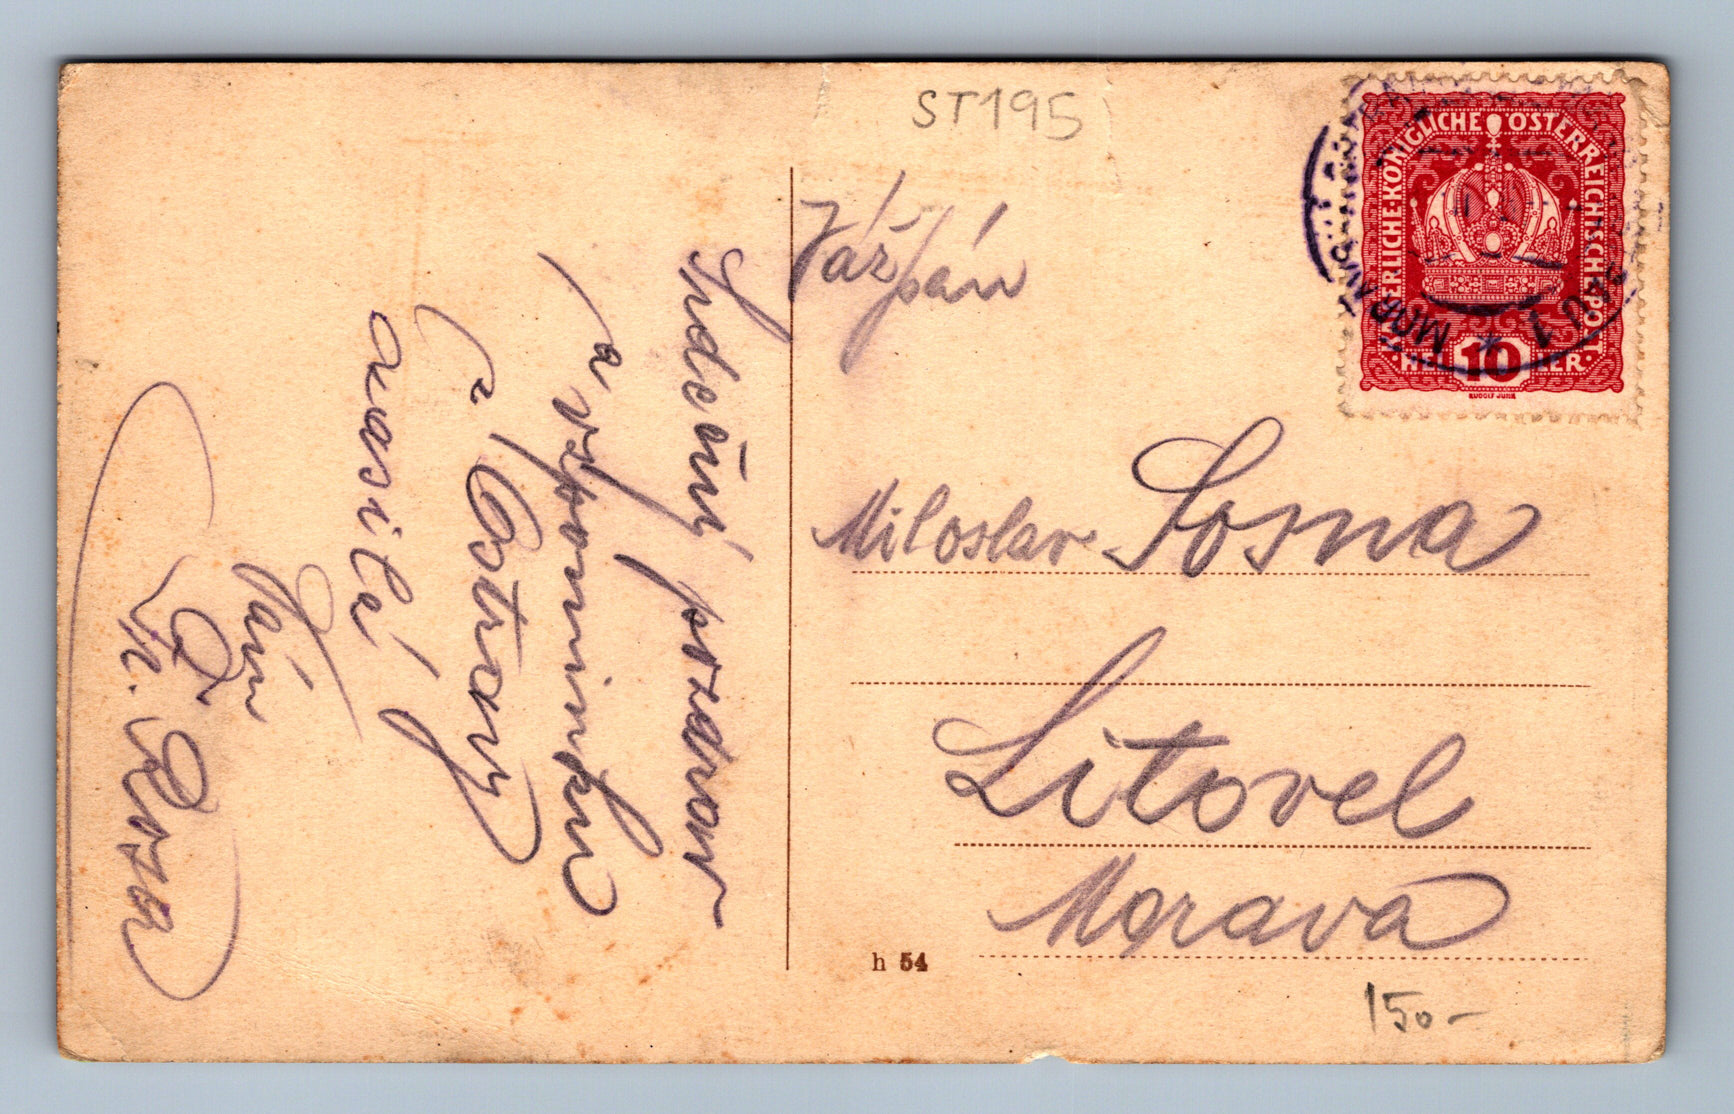 Srdečný pozdrav
a vzpomínku
z Ostravy
zasílá
Vám
M. Rosa
ST195
KAISERLICHE KÖNIGLICHE ÖSTERREICHISCHE POST
10
HELLER
RUDOLF JUNK
Váž pán
Miloslav Sosna
Litovel
Morava
h 54
150-